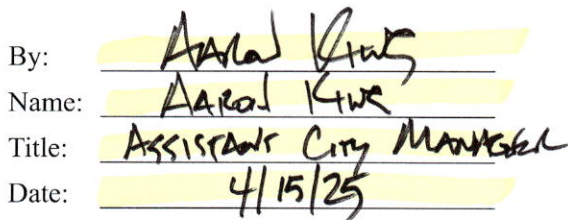 By: Aaron King
Name: Aaron King
Title: Assistant City Manager
Date: 4/15/25